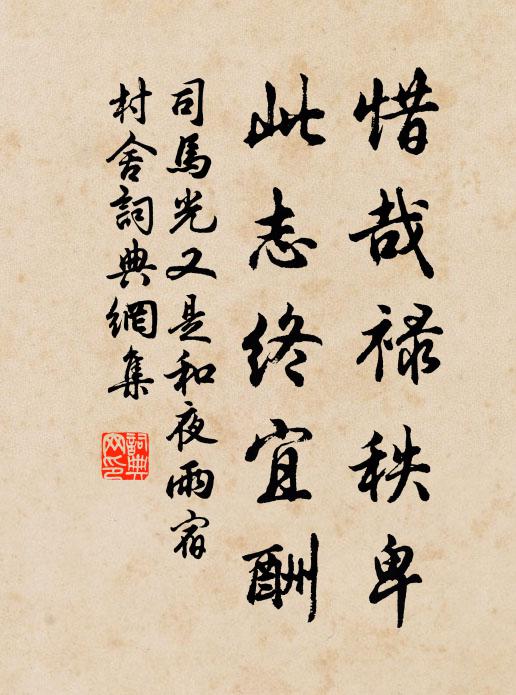 惜哉禄秩卑
此志终宜酬
司馬光又是和夜雨宿
村舍詞典網集
詞典网印